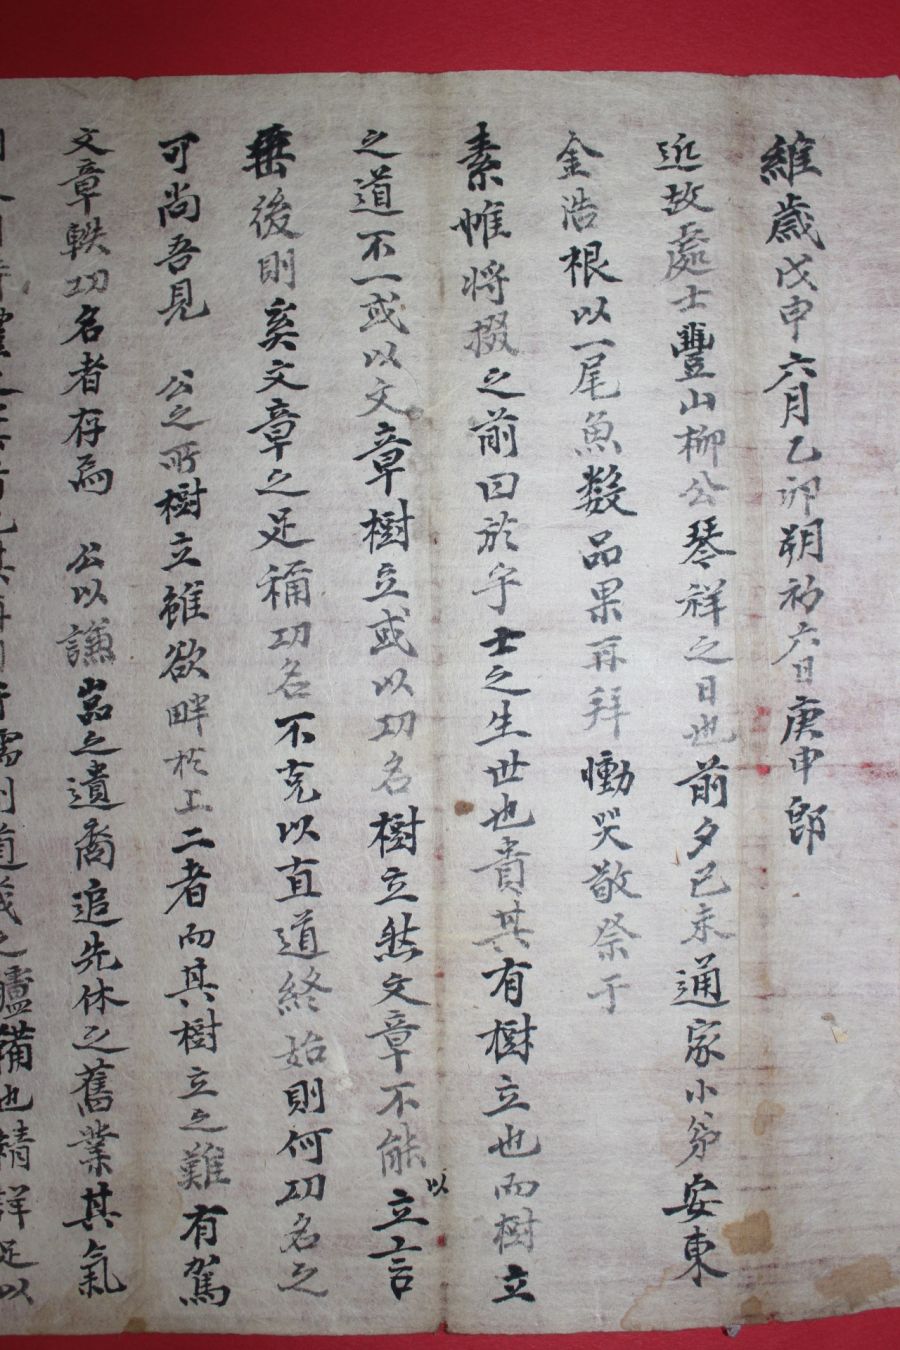 維歲戊申六月乙卯朔初六日庚申郎
近故處士豐山柳公琴祥之日也前夕己未通家小弟安東
金浩根以一尾魚數品果再拜慟哭敬祭于
素帷將掇之前曰於乎士之生世也貴其有樹立也而樹立
之道不一或以文章樹立或以功名樹立然文章不能以立言
垂後則奚文章之足稱功名不克以直道終始則何功名之
可尚吾見 公之所樹立雖欲畔於二者而其樹立之難有駕
文章軼功名者存焉 公以謙嵓之遺裔追先休之舊業其氣
道義之 備也精詳足以